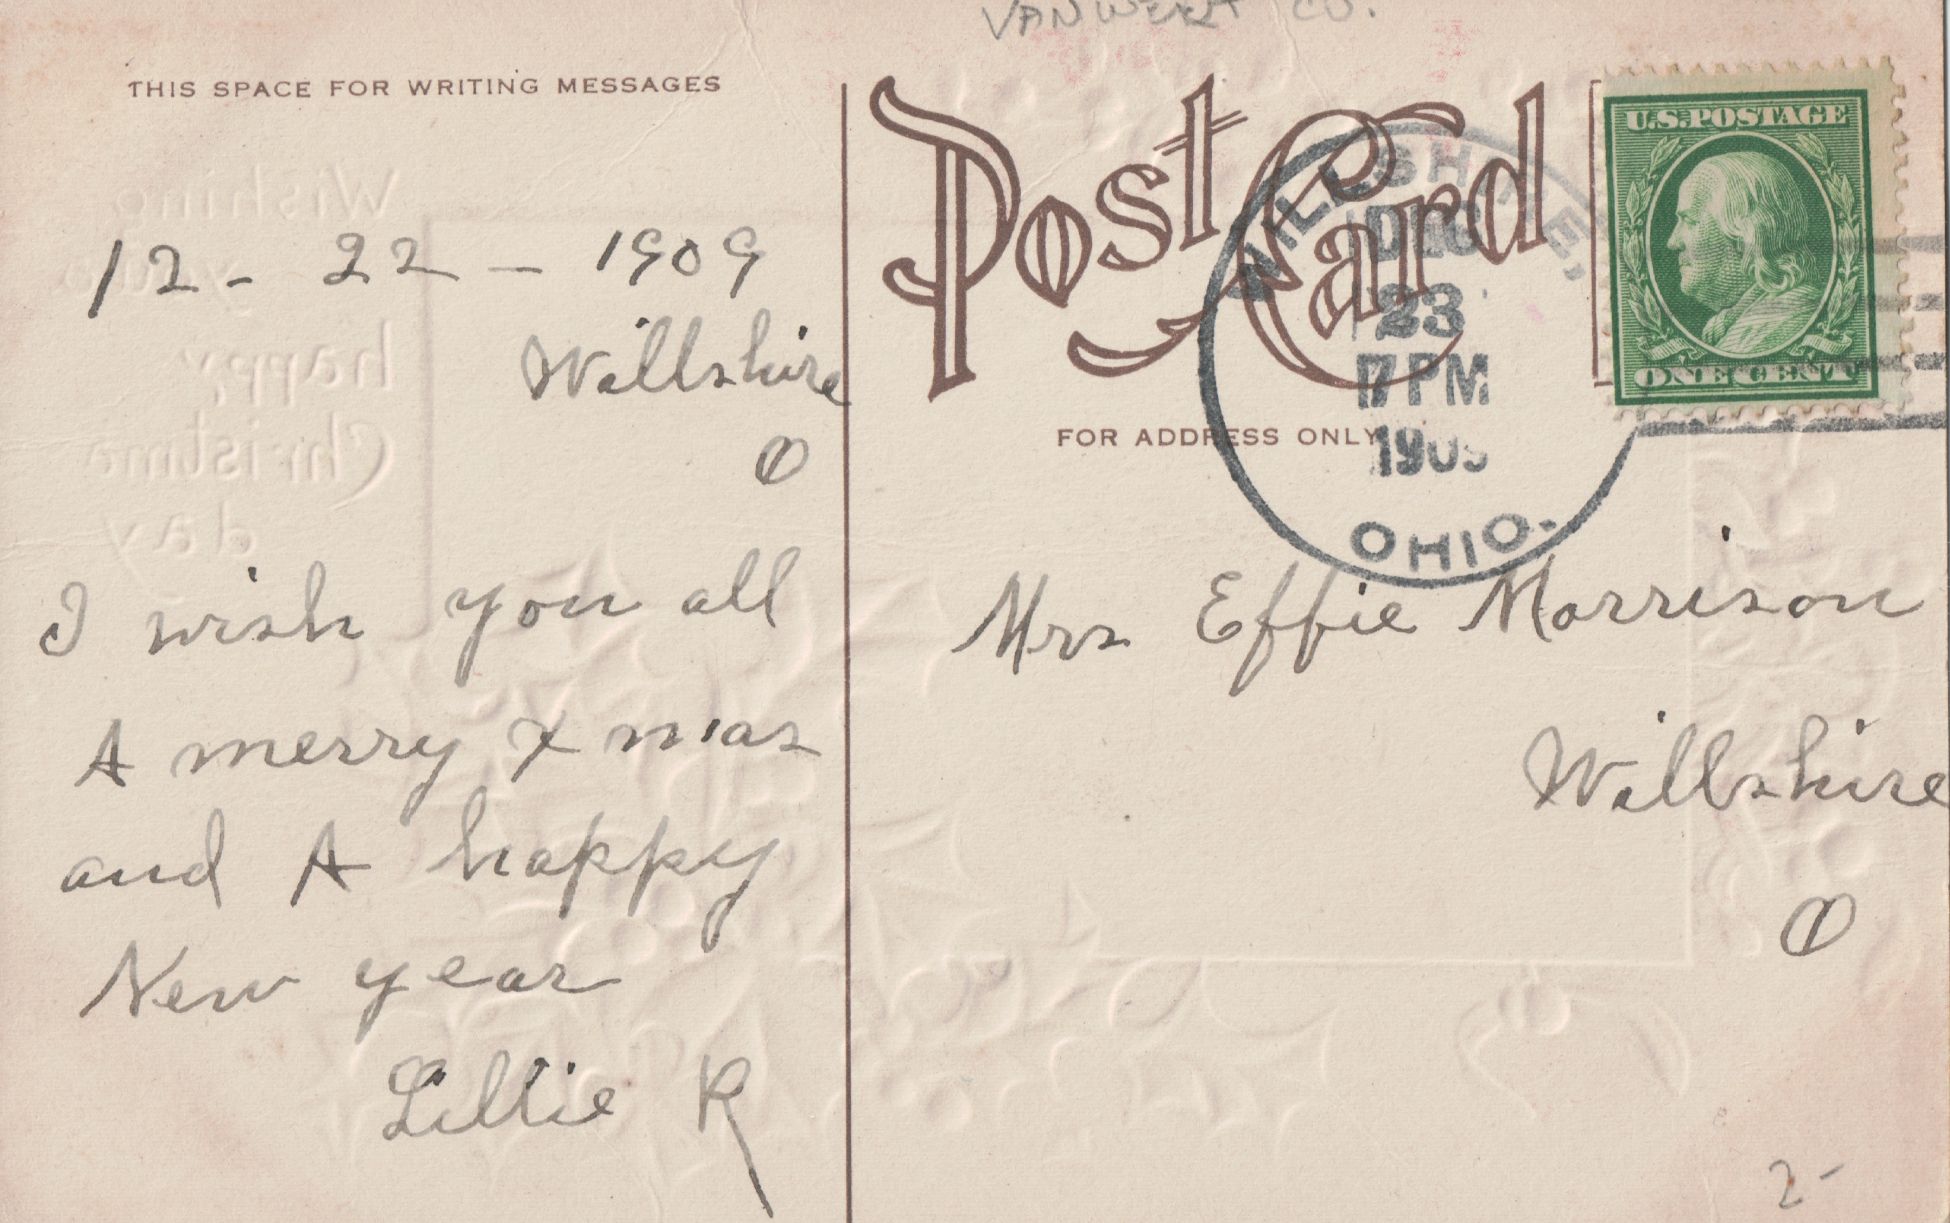 VANWERT CO.
THIS SPACE FOR WRITING MESSAGES
Post Card
FOR ADDRESS ONLY
U.S. POSTAGE
ONE CENT
WILLSHIRE,
DEC
23
7 PM
1909
OHIO.
12 - 22 - 1909
Willshire
O
I wish you all
A merry xmas
and A happy
New year
Lillie R
Mrs Effie Morrison
Willshire
O
2-
Wishing
you a
happy
Christmas
day